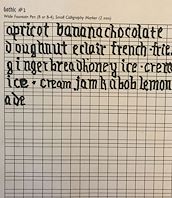 Gothic #1
Wide Fountain Pen (B or B-4), Small Calligraphy Marker (2 mm)
apricot banana chocolate
doughnut eclair french-frie
gingerbread honey ice-crem
ice-cream jam kabob lemon
ade